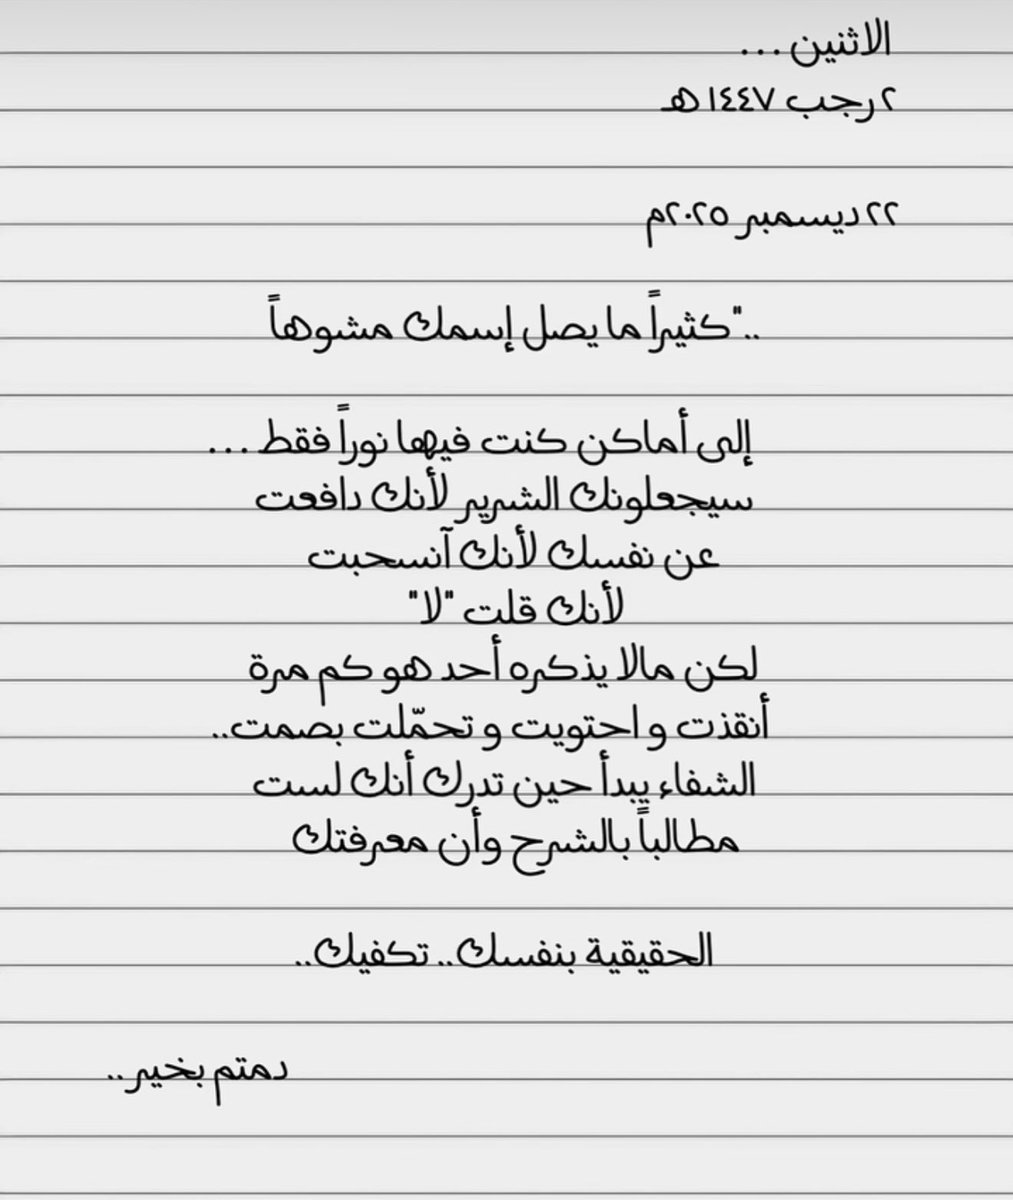 الاثنين ...
٢ رجب ١٤٤٧ هـ
٢٢ ديسمبر ٢٠٢٥م
.."كثيراً ما يصل إسمك مشوهاً
إلى أماكن كنت فيها نوراً فقط ...
سيجعلونك الشرير لأنك دافعت
عن نفسك لأنك آنسحبت
لأنك قلت "لا"
لكن مالا يذكره أحد هو كم مرة
أنقذت و احتويت و تحمّلت بصمت..
الشفاء يبدأ حين تدرك أنك لست
مطالباً بالشرح وأن معرفتك
الحقيقية بنفسك.. تكفيك..
دمتم بخير..